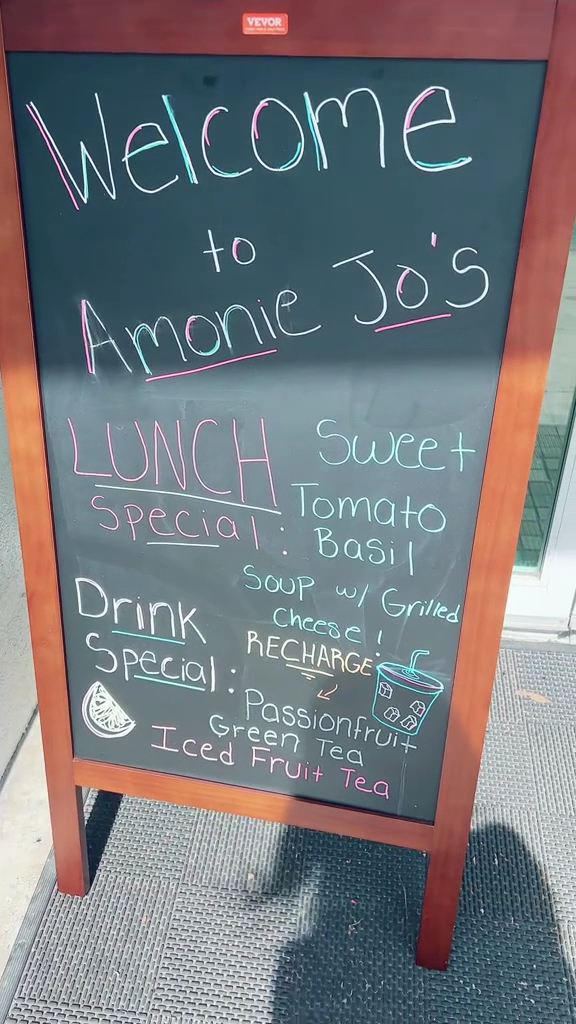 VEVOR
Welcome
to
Amonie Jo's
LUNCH
Special:
Sweet
Tomato
Basil
Soup w/ Grilled
Cheese!
Drink
Special:
RECHARGE
Passionfruit
Green Tea
Iced Fruit Tea